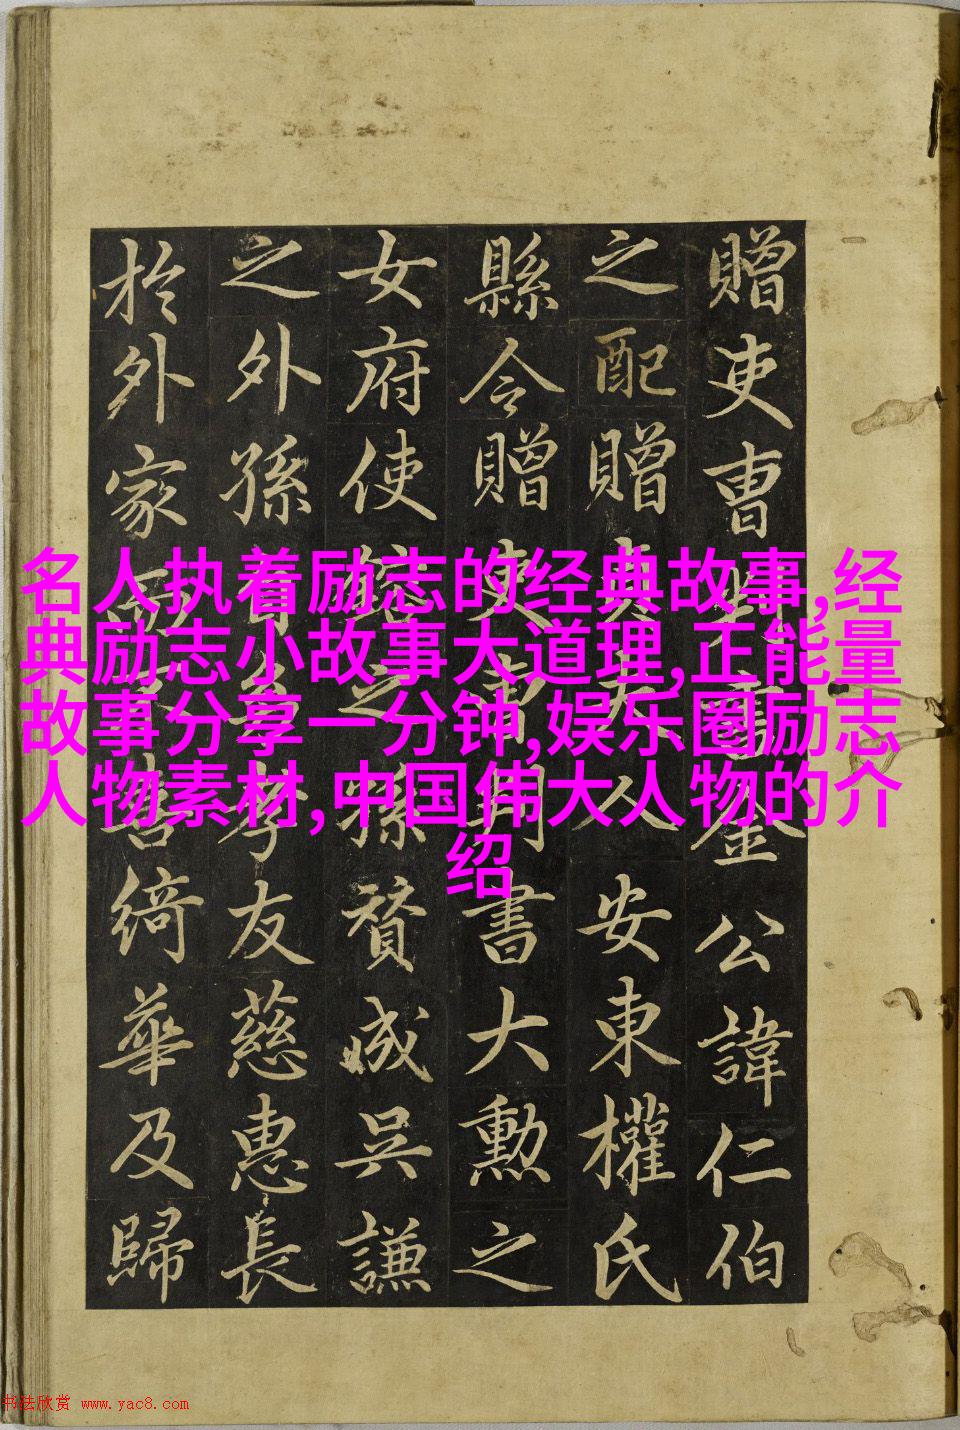 名人执着励志的经典故事,经
典励志小故事大道理,正能量
故事分享一分钟,娱乐圈励志
人物素材,中国伟大人物的介
绍
贈吏曹金公諱仁伯
之配贈夫人安東權氏
縣令贈吏書大勳之
女府使之孫贊成吳謙
之外孫孝友慈惠長
於外家綺華及歸
书法欣赏 www.yac8.com